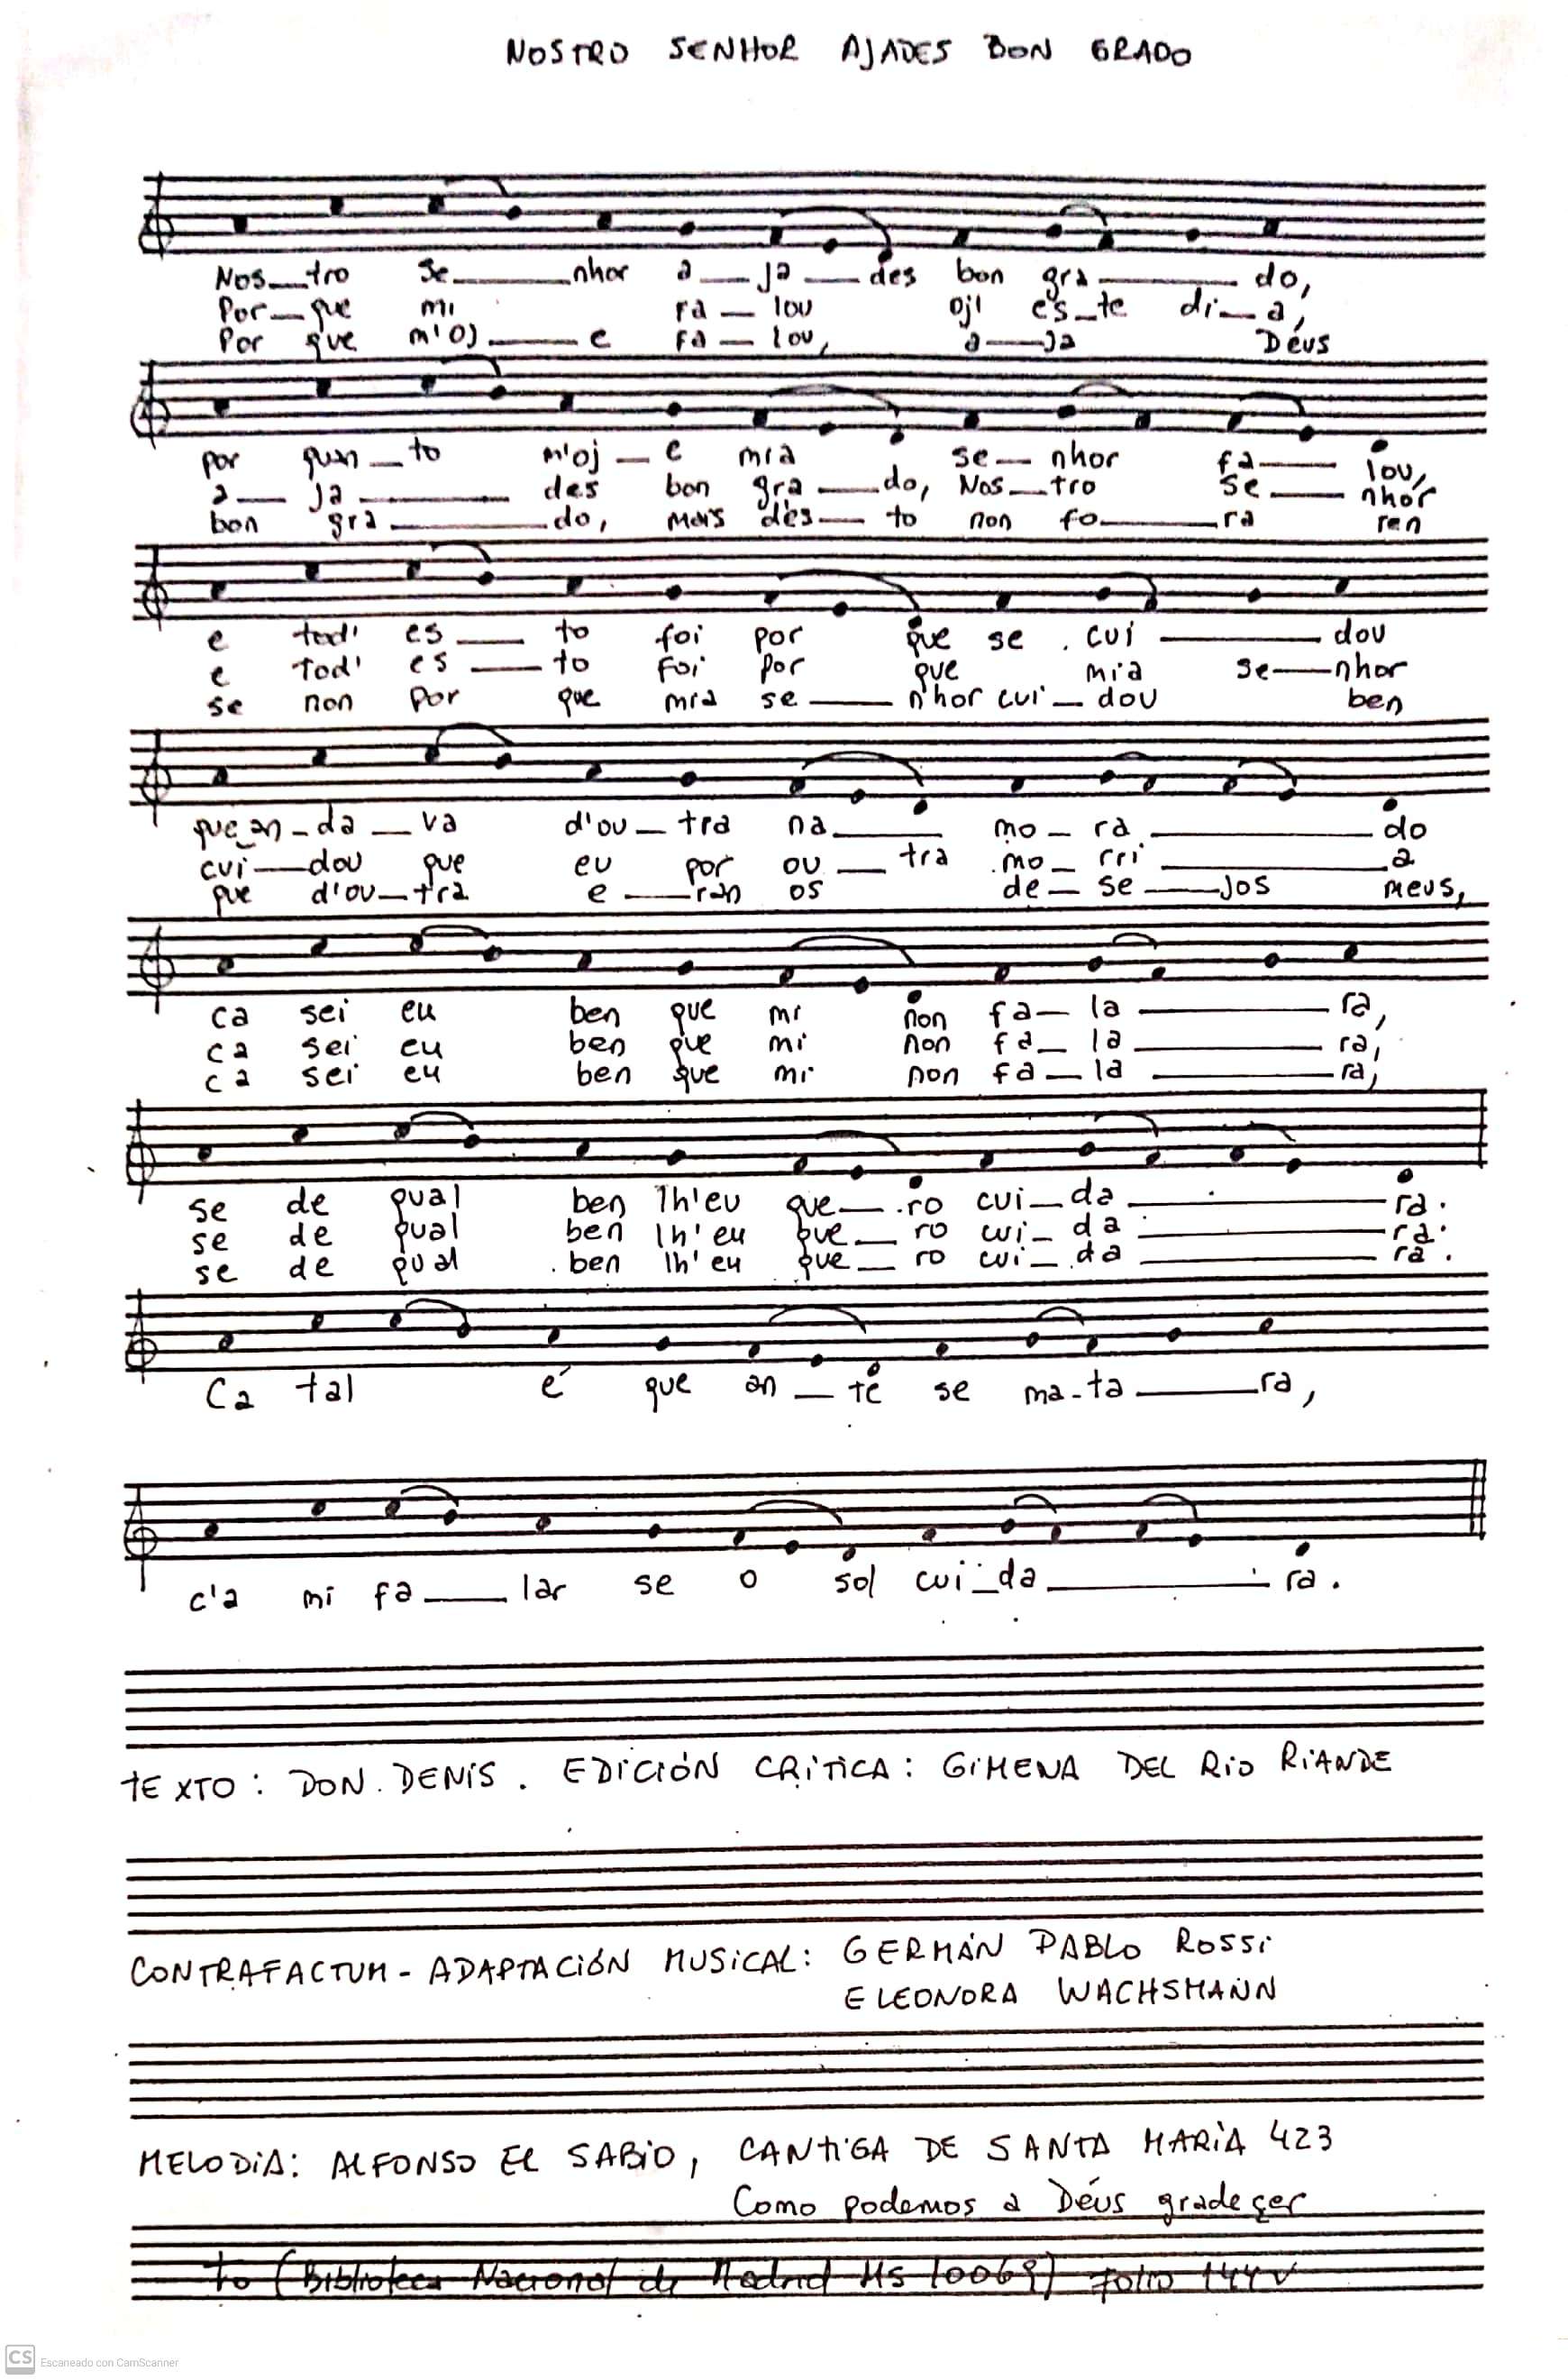 NOSTRO SENHOR AJADES BON GRADO
Nos_tro se_nhor a_ja_des bon gra_do,
Por_que mi fa_lou oj' es_te di_a,
Por que m'oj_e fa_lou, a_ja Déus
por quan_to m'oj_e mia se_nhor fa_lou,
a_ja_des bon gra_do, Nos_tro se_nhor
bon gra_do, mais dés_to non fo_ra ren
e tod' es_to foi por que se cui_dou
e tod' es_to foi por que mia se_nhor
se non por que mia se_nhor cui_dou ben
que an_da_va d'ou_tra na_mo_ra_do
cui_dou que eu por ou_tra mo_rri_a
que d'ou_tra e_ran os de_se_jos meus,
ca sei eu ben que mi non fa_la_ra,
ca sei eu ben que mi non fa_la_ra,
ca sei eu ben que mi non fa_la_ra,
se de qual ben lh'eu que_ro cui_da_ra.
se de qual ben lh'eu que_ro cui_da_ra.
se de qual ben lh'eu que_ro cui_da_ra.
Ca tal é que an_te se ma_ta_ra,
c'a mi fa_lar se o sol cui_da_ra.
TEXTO: DON DENIS. EDICIÓN CRITICA: GIMENA DEL RIO RIANDE
CONTRAFACTUM - ADAPTACIÓN MUSICAL: GERMÁN PABLO ROSSI
ELEONORA WACHSMANN
MELODIA: ALFONSO EL SABIO, CANTIGA DE SANTA MARIA 423
Como podemos a Déus gradeçer
to (Biblioteca Nacional de Madrid Ms 10069) folio 144 v
CS Escaneado con CamScanner